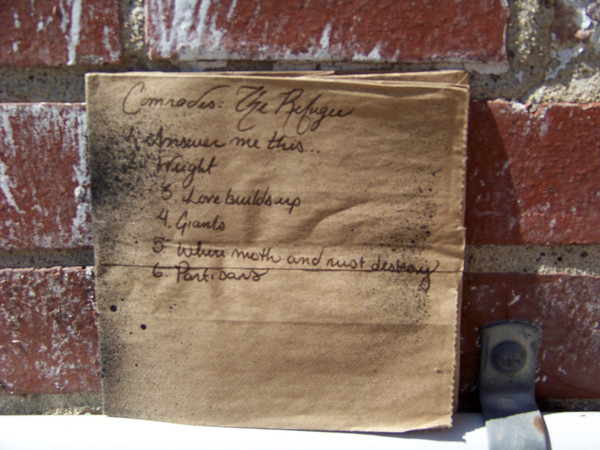 Comrades: The Refugee
1. Answer me this..
Wright
3. Love builds up
4. Giants
5. When moth and rust destroy
6. Partisans